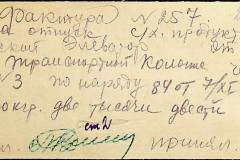 Фактура № 257
на отпуск с/х. продукт
ский Элеватор от
Транспортной Колонне
№3 по наряду 84 от 7/XI
окгр. две тысячи двести
ст 2
принял